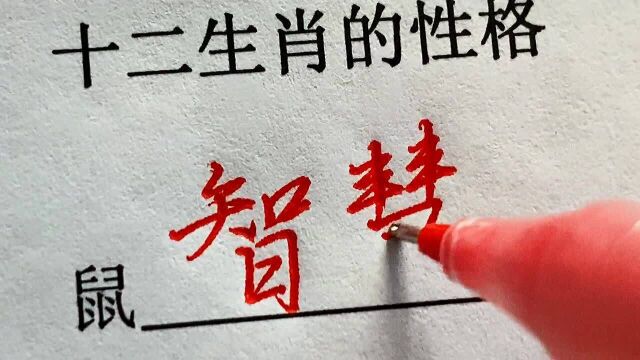 十二生肖的性格
鼠 智慧